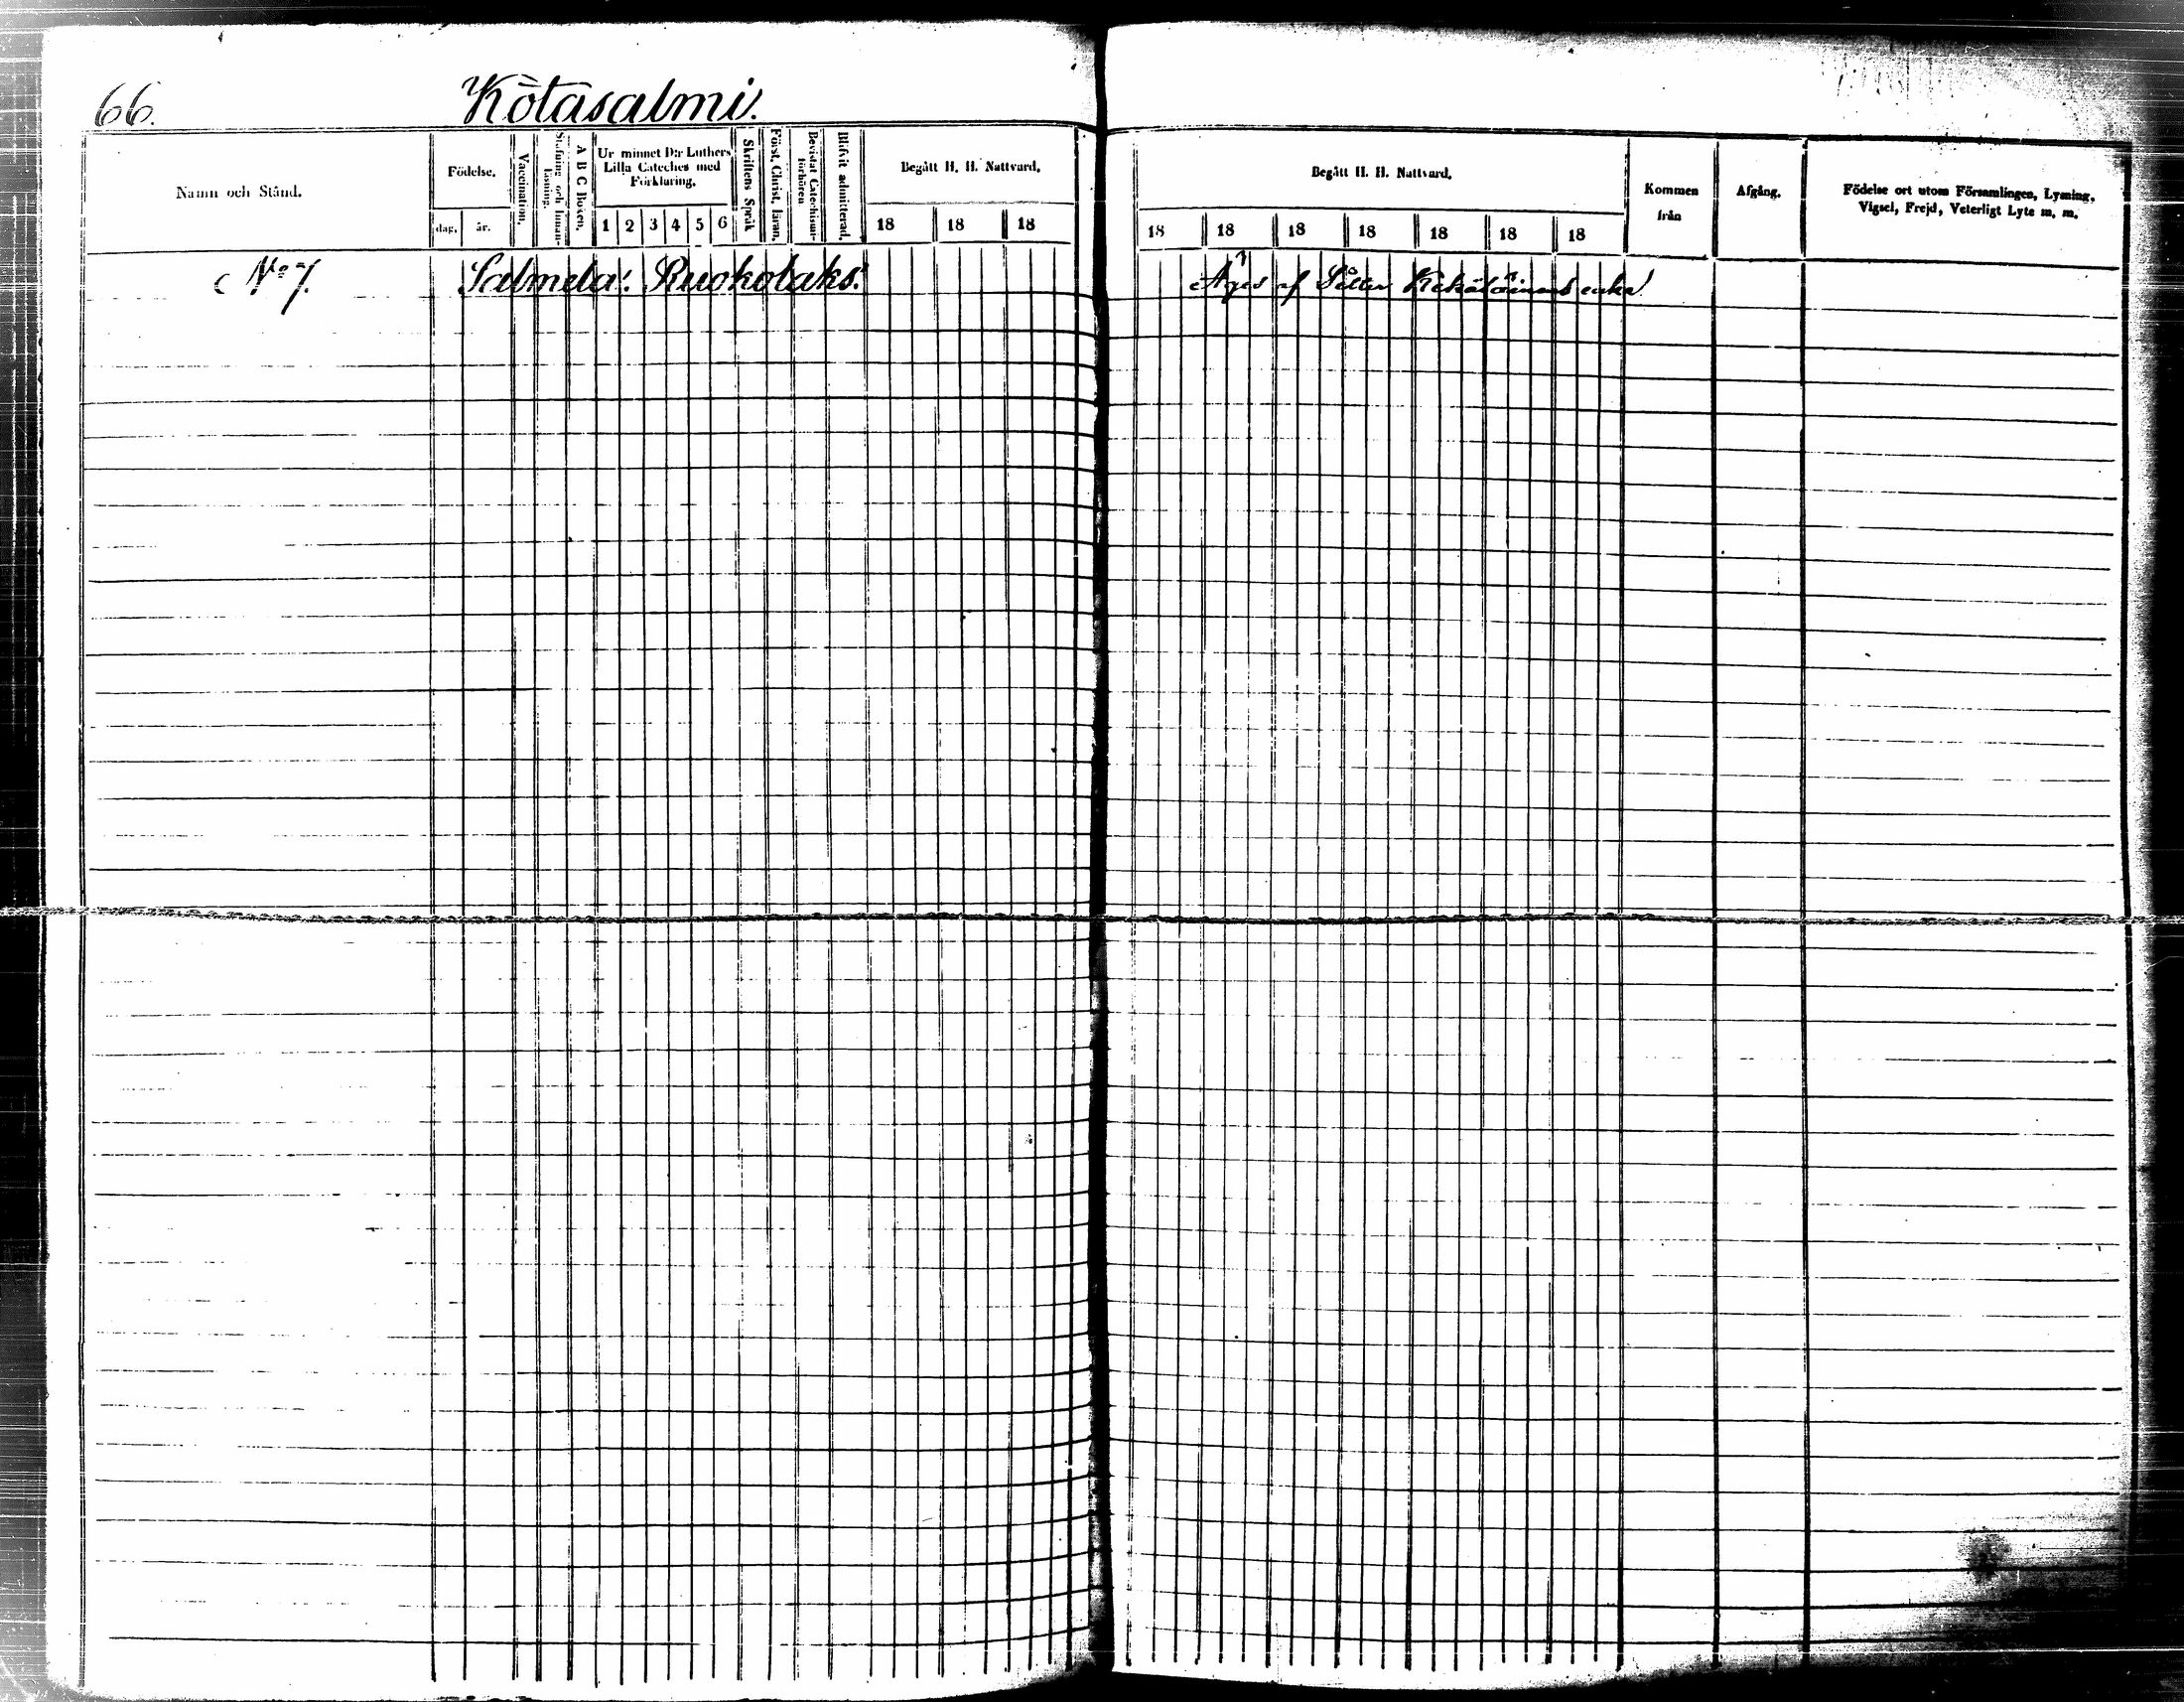 66. Kotasalmi.
Namn och Stånd.
Födelse.
dag. år.
Vaccination.
Stafning och Innan-läsning.
A B C Boken.
Ur minnet D:r Luthers Lilla Cateches med Förklaring.
1 2 3 4 5 6
Skriftens Språk
Först. Christ. läran.
Bevistat Catechismi-förhören
Blifvit admitterad.
Begått H. H. Nattvard.
18 18 18
Begått H. H. Nattvard.
18 18 18 18 18 18 18
Kommen från
Afgång.
Födelse ort utom Församlingen, Lysning, Vigsel, Frejd, Veterligt Lyte m. m.
No 7. Salmela: Ruokolaks. Äges af Kekäläinens enka